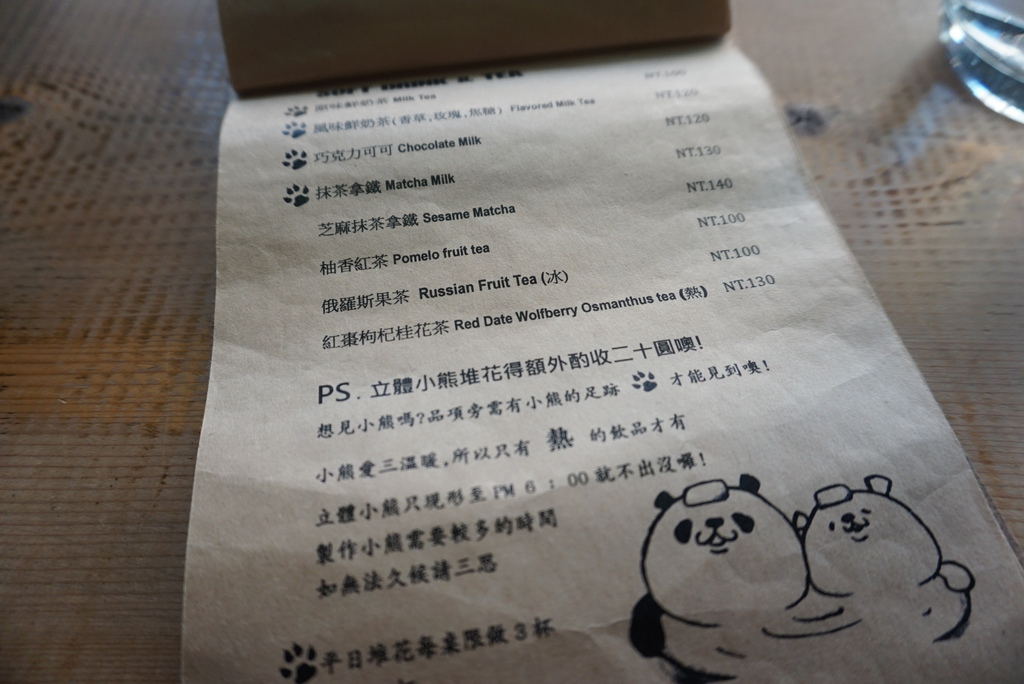 SOFT DRINK & TEA
原味鮮奶茶 Milk Tea NT.100
風味鮮奶茶(香草,玫瑰,焦糖) Flavored Milk Tea NT.120
巧克力可可 Chocolate Milk NT.120
抹茶拿鐵 Matcha Milk NT.130
芝麻抹茶拿鐵 Sesame Matcha NT.140
柚香紅茶 Pomelo fruit tea NT.100
俄羅斯果茶 Russian Fruit Tea (冰) NT.100
紅棗枸杞桂花茶 Red Date Wolfberry Osmanthus tea (熱) NT.130
PS. 立體小熊堆花得額外酌收二十圓噢!
想見小熊嗎?品項旁需有小熊的足跡 才能見到噢!
小熊愛三溫暖,所以只有 熱 的飲品才有
立體小熊只現形至 PM 6 : 00 就不出沒囉!
製作小熊需要較多的時間
如無法久候請三思
平日堆花每桌限做 3 杯